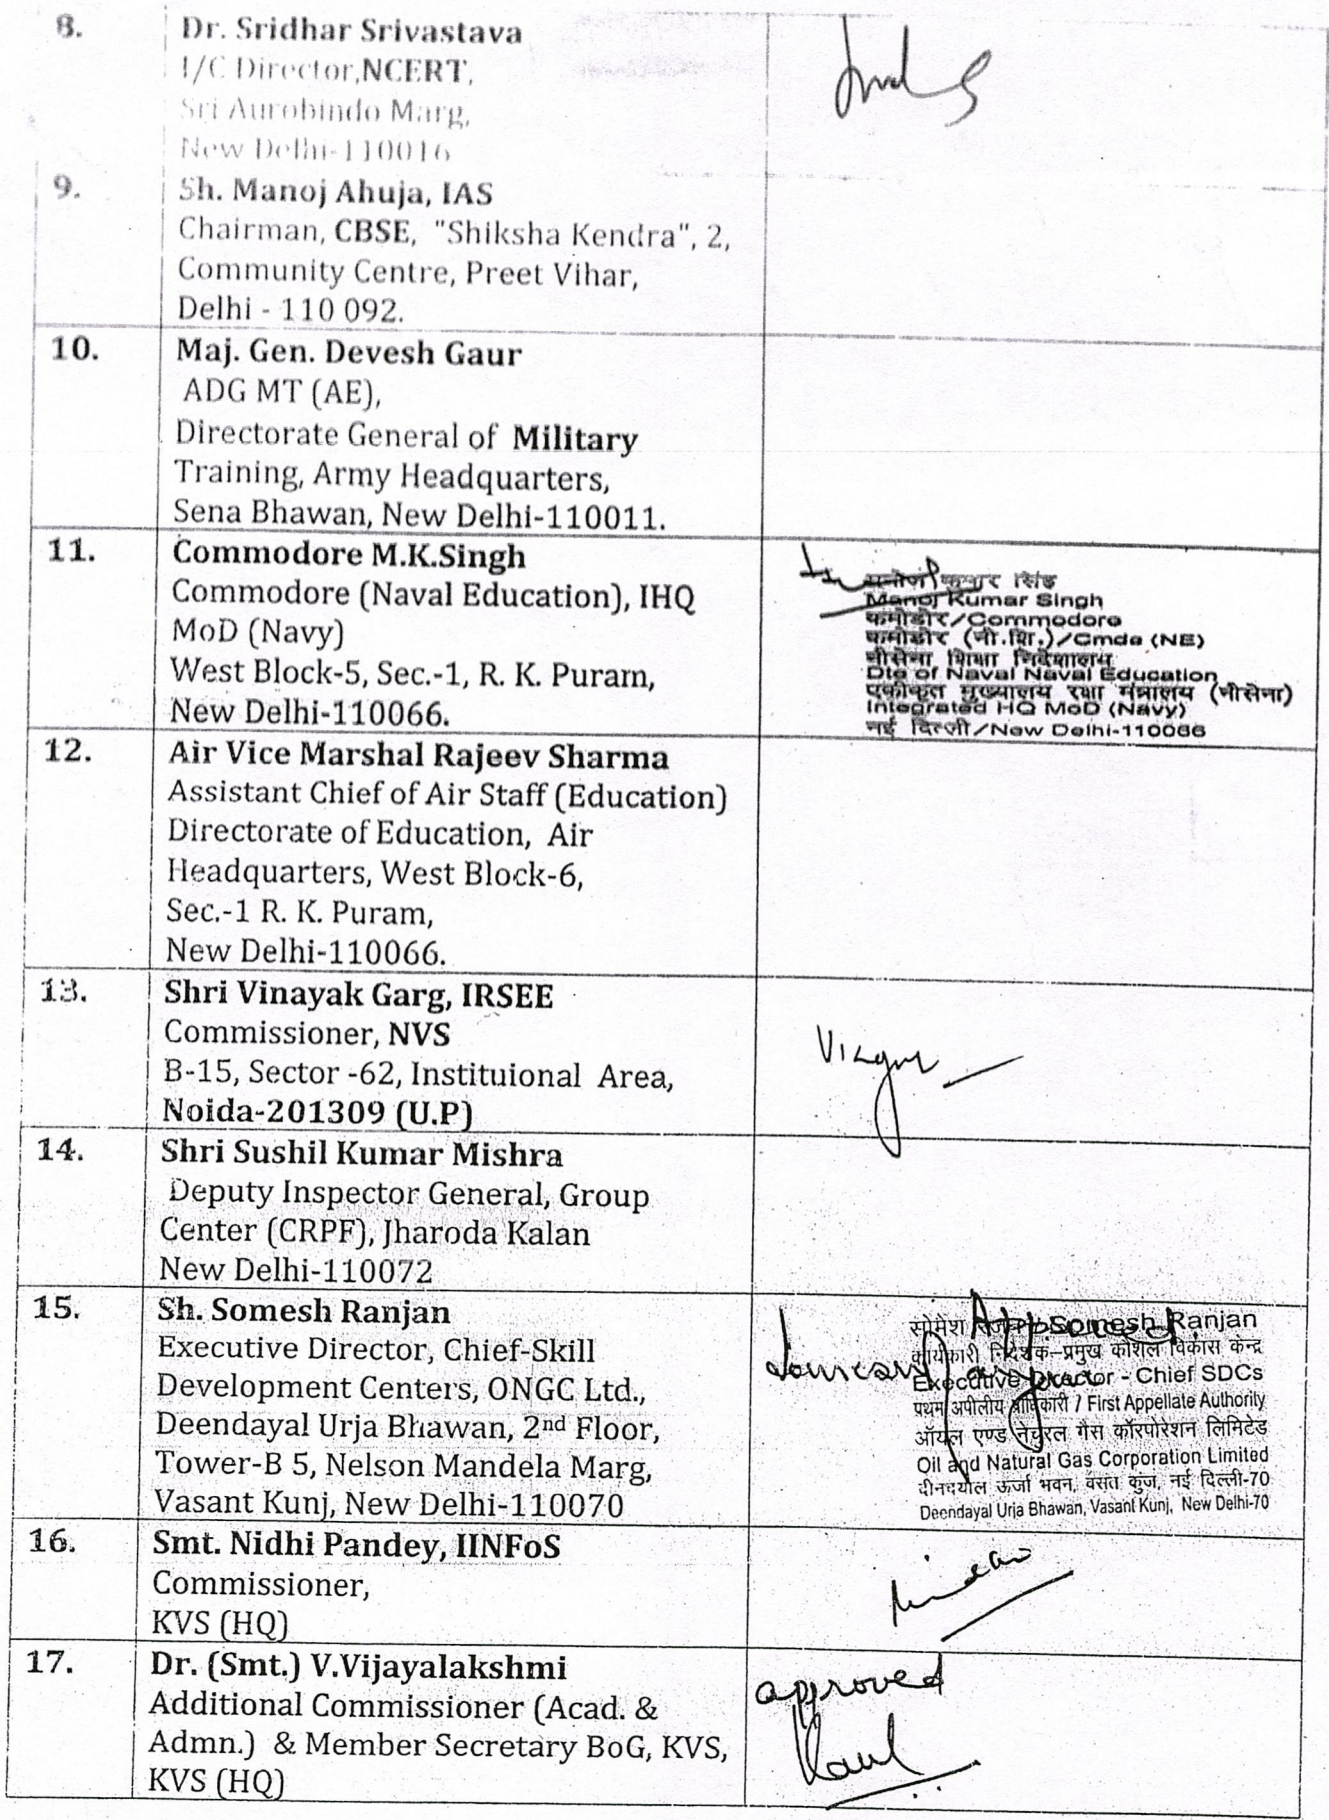 8.
Dr. Sridhar Srivastava
I/C Director,NCERT,
Sri Aurobindo Marg,
New Delhi-110016
9.
Sh. Manoj Ahuja, IAS
Chairman, CBSE, "Shiksha Kendra", 2,
Community Centre, Preet Vihar,
Delhi - 110 092.
10.
Maj. Gen. Devesh Gaur
ADG MT (AE),
Directorate General of Military
Training, Army Headquarters,
Sena Bhawan, New Delhi-110011.
11.
Commodore M.K.Singh
Commodore (Naval Education), IHQ
MoD (Navy)
West Block-5, Sec.-1, R. K. Puram,
New Delhi-110066.
मनोज कुमार सिंह
Manoj Kumar Singh
कमोडोर/Commodore
कमोडोर (नौ.शि.)/Cmde (NE)
नौसेना शिक्षा निदेशालय
Dte of Naval Naval Education
एकीकृत मुख्यालय रक्षा मंत्रालय (नौसेना)
Integrated HQ MoD (Navy)
नई दिल्ली/New Delhi-110066
12.
Air Vice Marshal Rajeev Sharma
Assistant Chief of Air Staff (Education)
Directorate of Education, Air
Headquarters, West Block-6,
Sec.-1 R. K. Puram,
New Delhi-110066.
13.
Shri Vinayak Garg, IRSEE
Commissioner, NVS
B-15, Sector -62, Instituional Area,
Noida-201309 (U.P)
14.
Shri Sushil Kumar Mishra
Deputy Inspector General, Group
Center (CRPF), Jharoda Kalan
New Delhi-110072
15.
Sh. Somesh Ranjan
Executive Director, Chief-Skill
Development Centers, ONGC Ltd.,
Deendayal Urja Bhawan, 2nd Floor,
Tower-B 5, Nelson Mandela Marg,
Vasant Kunj, New Delhi-110070
Approved
सोमेश Somesh Ranjan
कार्यकारी निदेशक-प्रमुख कौशल विकास केन्द्र
Executive Director - Chief SDCs
प्रथम अपीलीय प्राधिकारी / First Appellate Authority
ऑयल एण्ड नेचुरल गैस कॉरपोरेशन लिमिटेड
Oil and Natural Gas Corporation Limited
दीनदयाल ऊर्जा भवन, वसंत कुंज, नई दिल्ली-70
Deendayal Urja Bhawan, Vasant Kunj, New Delhi-70
16.
Smt. Nidhi Pandey, IINFoS
Commissioner,
KVS (HQ)
17.
Dr. (Smt.) V.Vijayalakshmi
Additional Commissioner (Acad. &
Admn.) & Member Secretary BoG, KVS,
KVS (HQ)
approved